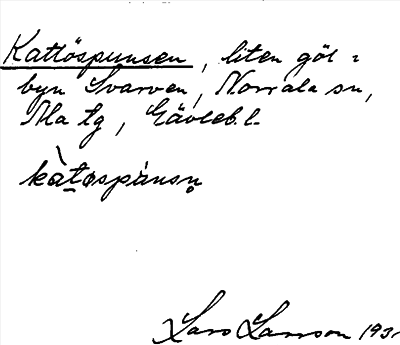 Kattöspunsen, liten göl i
byn Svarven, Norrala sn,
Ala tg, Gävleb. l.
kàtospànsn
Lars Larsson 193